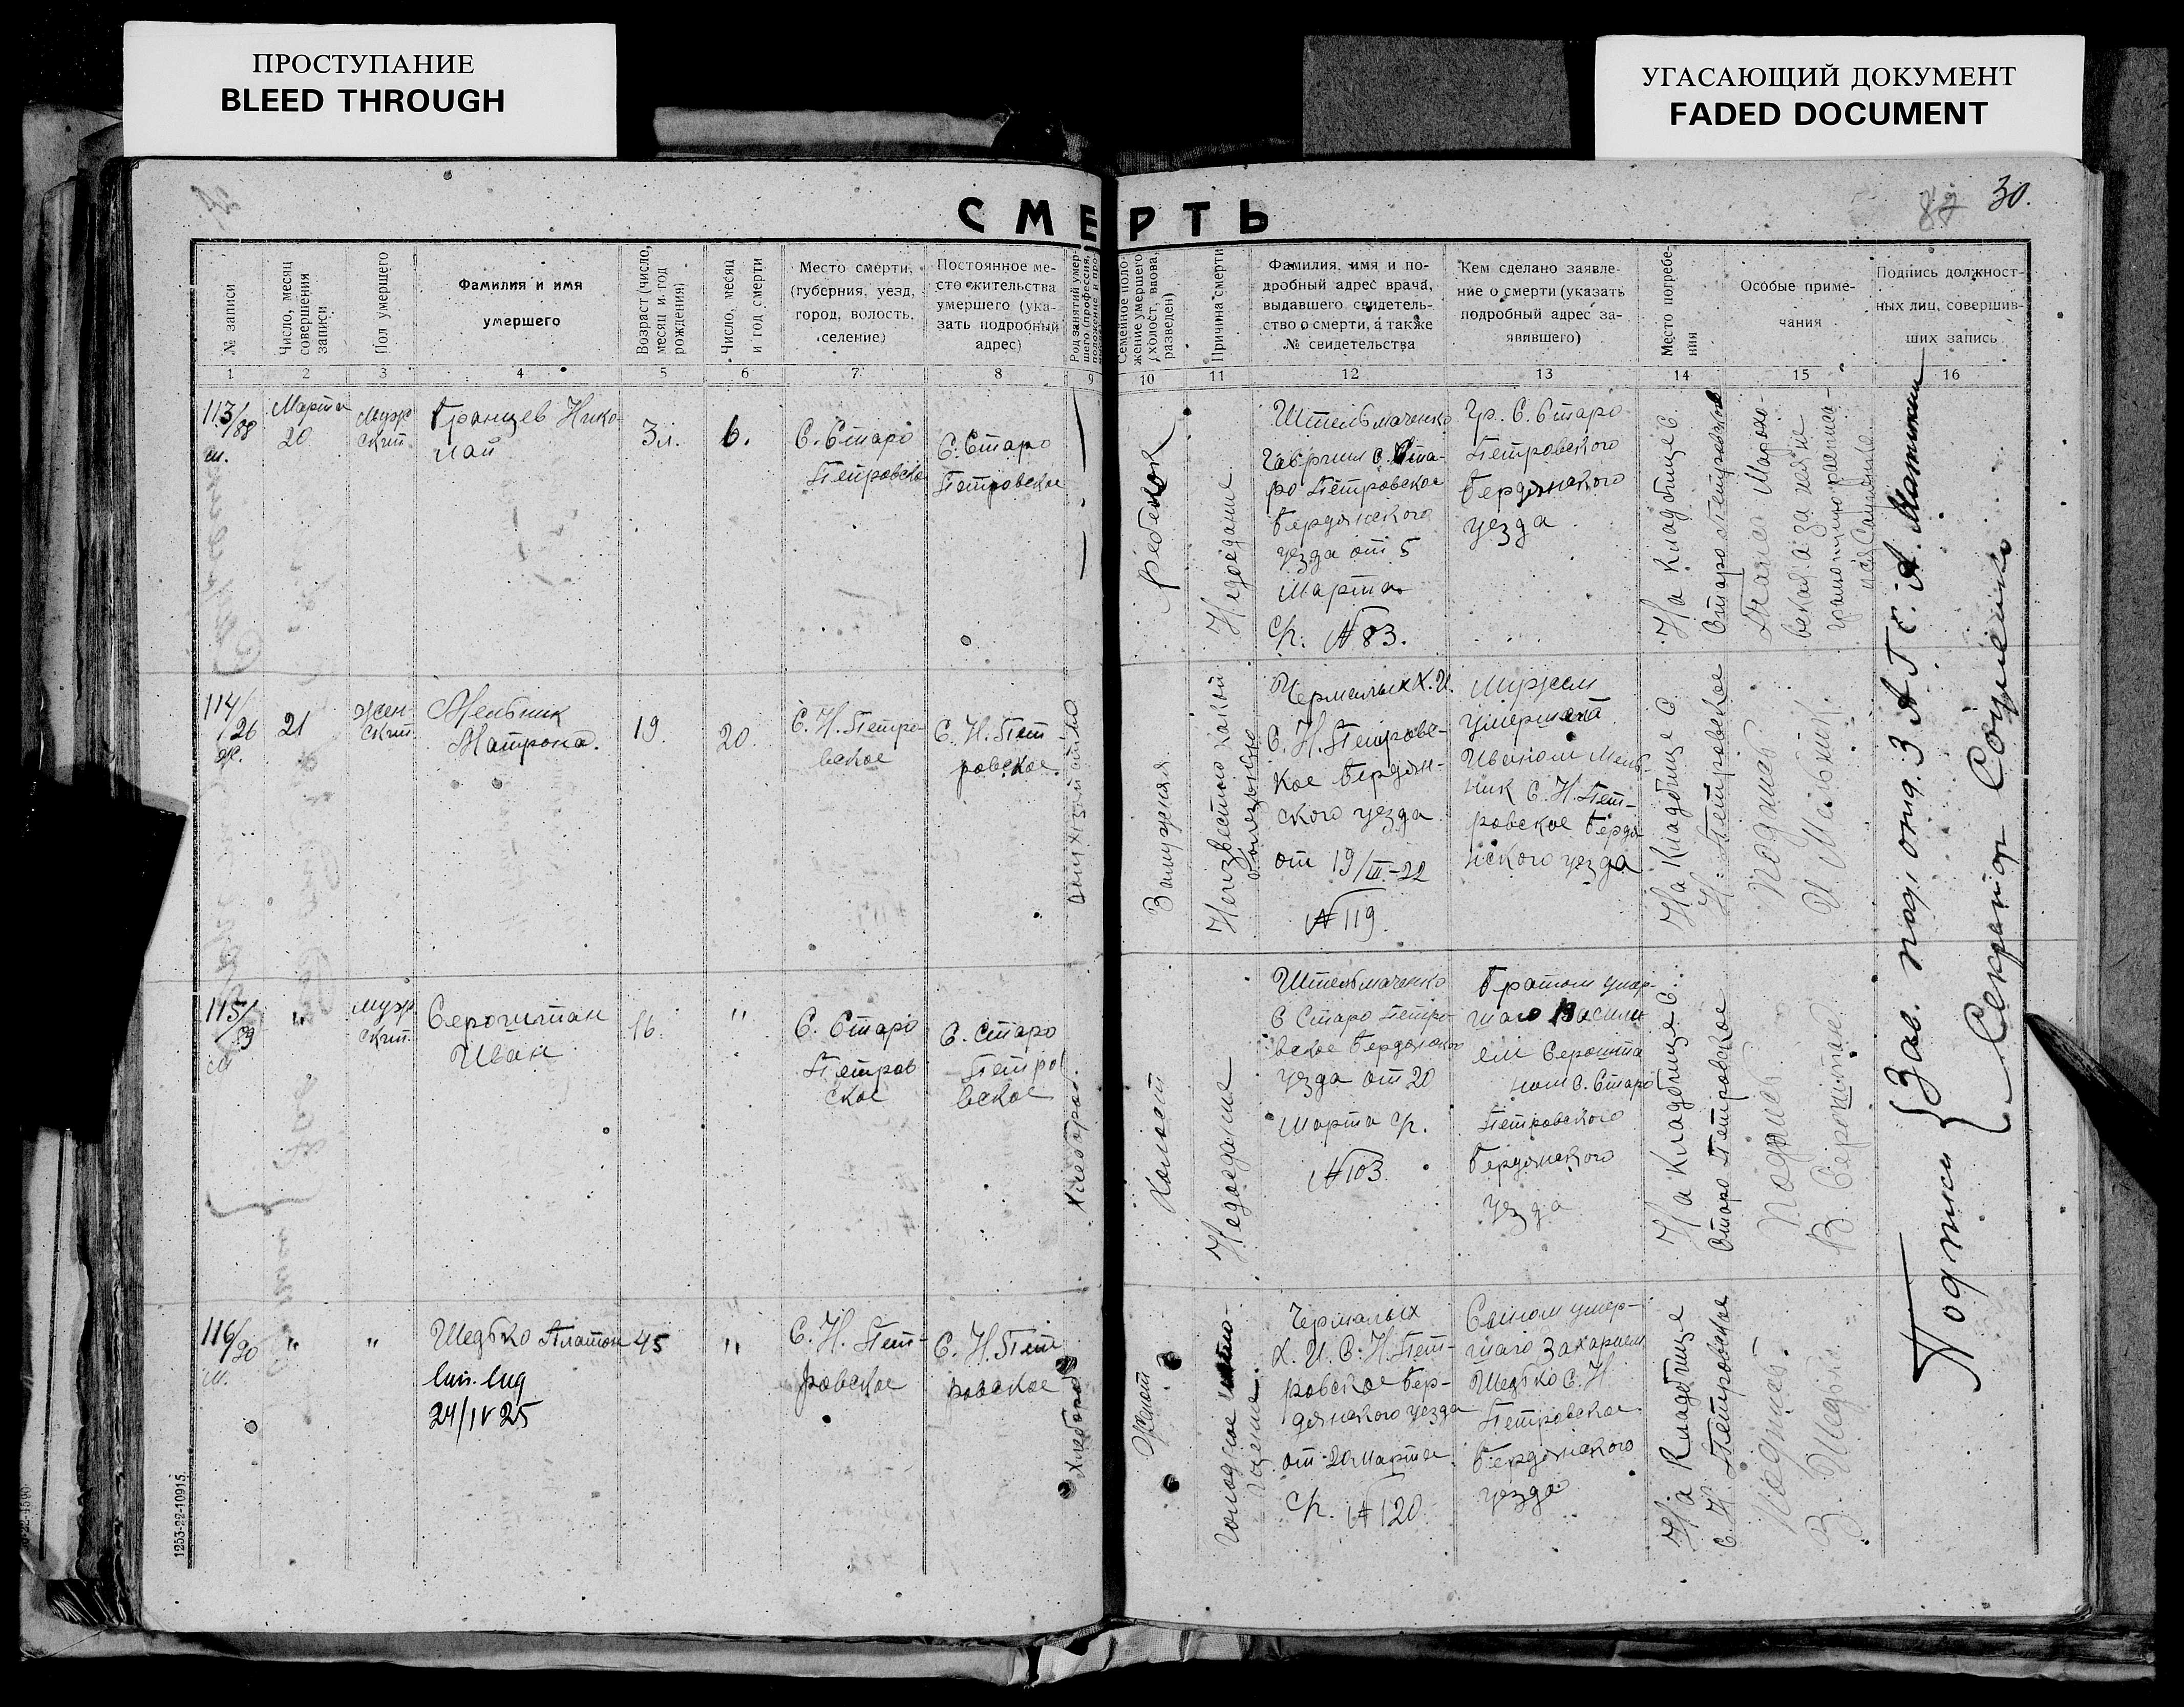 ПРОСТУПАНИЕ
BLEED THROUGH
УГАСАЮЩИЙ ДОКУМЕНТ
FADED DOCUMENT
87 30.
СМЕРТЬ
№ записи
Число, месяц
совершения
записи
Пол умершего
Фамилия и имя
умершего
Возраст (число,
месяц и год
рождения)
Число, месяц
и год смерти
Место смерти,
(губерния, уезд,
город, волость,
селение)
Постоянное ме-
сто жительства
умершего (ука-
зать подробный
адрес)
Род занятий умер-
шего (профессия,
положение в про-
Семейное поло-
жение умершего
(холост, вдова,
разведен)
Причина смерти
Фамилия, имя и по-
дробный адрес врача,
выдавшего свидетель-
ство о смерти, а также
№ свидетельства
Кем сделано заявле-
ние о смерти (указать
подробный адрес за-
явившего)
Место погребе-
ния
Особые приме-
чания
Подпись должност-
ных лиц, совершив-
ших запись
1 2 3 4 5 6 7 8 9 10 11 12 13 14 15 16
113/88
м.
Марта
20
Муж
ский
Гранцев Нико
лай
3 л.
6.
С. Старо
Петровское
С. Старо
Петровское
Ребенок
Недоедание
Штельмаченко
Гавриил С. Ста-
ро Петровское
Бердянского
уезда от 5
Марта
с/г. № 83.
Гр. С. Старо
Петровского
Бердянского
уезда
На Кладбище С.
Старо Петровское
114/26
ж.
21
Жен-
ский
Мельник
Матрона.
19.
20.
С. Н. Петро-
вское
С. Н. Пет
ровское.
Замужняя
Неизвестно какой
болезнью
Чермалых Х. И.
С. Н. Петровс-
кое Бердян-
ского уезда
от 19/III-22
№ 119.
Мужем
умершей
Иваном Мель
ник С. Н. Пет-
ровское Бердя-
нского уезда
На Кладбище С.
Н. Петровское
Подпись
И Мельник.
115/89
м
"
муж
ский.
Сероштан
Иван
16.
"
С. Старо
Петров
ское
С. Старо
Петро
вское
Хлебороб.
Холост
Недоедание
Штельмаченко
С Старо Петро-
вское Бердянского
уезда от 20
Марта с/г.
№ 103.
Братом умер-
шаго Васили
ем Серошта
ном С. Старо
Петровского
Бердянского
уезда
На Кладбище С.
Старо Петровское
Подпись
В. Сероштан
116/90
м.
"
"
Шедько Платон
24/IV 25
45
"
С. Н. Пет-
ровское
С. Н. Пет
ровское
Хлебороб
Женат
Голодное исто-
щение.
Чермалых
Х. И. С. Н. Пет-
ровское Бер-
дянского уезда
от 20 Марта
с/г. № 120.
Сыном умер-
шаго Захарием
Шедько С. Н
Петровское
Бердянского
уезда
На Кладбище
С. Н. Петровское
Подпись.
З. Шедько
Подписи { Зав.
Секретар
1253-22-10915.